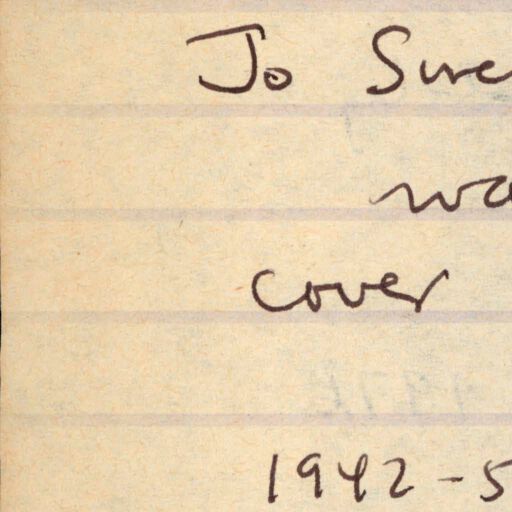 Jo Sure
wa
cover
1942-5